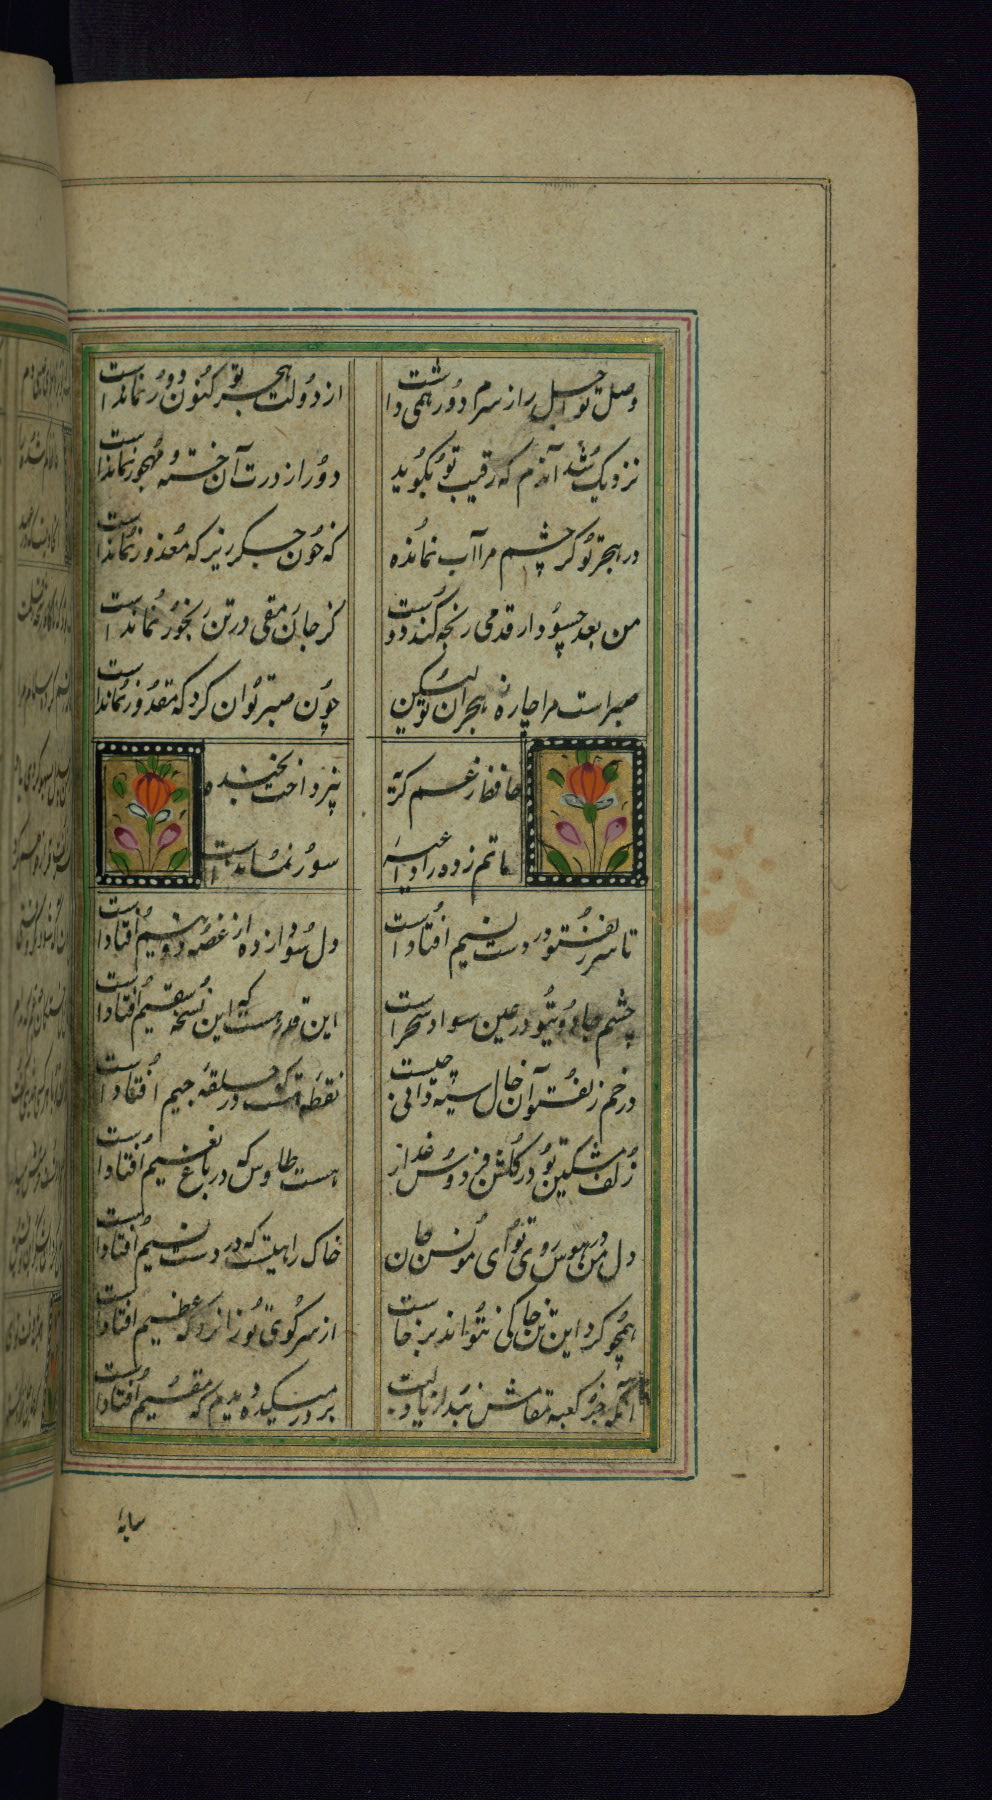 وصل تو اجل را ز سرم دور همی داشت
از دولت هجر تو کنون دور نماندست
نزدیک شد آندم که رقیب تو بگوید
دور از درت آن خسته مهجور نماندست
در هجر تو گر چشم مرا آب نمانده
که خون جگر ریز که معذور نماندست
من بعد چه سود ار قدمی رنجه کند دوست
کز جان رمقی در تن رنجور نماندست
صبر است مرا چاره ز هجران تو لیکن
چون صبر توان کرد که مقدور نماندست
حافظ ز غم گریه
نپرداخت بخنده
ماتم زده را داعیه
سور نماندست
تا سر زلف تو در دست نسیم افتادست
دل سودا زده از غصه دو نیم افتادست
چشم جادوی تو در عین سواد سحر است
این قدر هست که این نسخه سقیم افتادست
در خم زلف تو آن خال سیه دانی چیست
نقطه که در حلقه جیم افتادست
زلف مشکین تو در گلشن فردوس عذار
هست طاوس که در باغ نعیم افتادست
دل من در هوس روی تو ای مونس جان
خاک راهیست که در دست نسیم افتادست
همچو گرد این تن خاکی نتواند برخاست
از سر کوی تو زانرو که عظیم افتادست
آنکه جز کعبه مقامش نبد از یاد لبت
بر در میکده دیدم که مقیم افتادست
سایهٔ